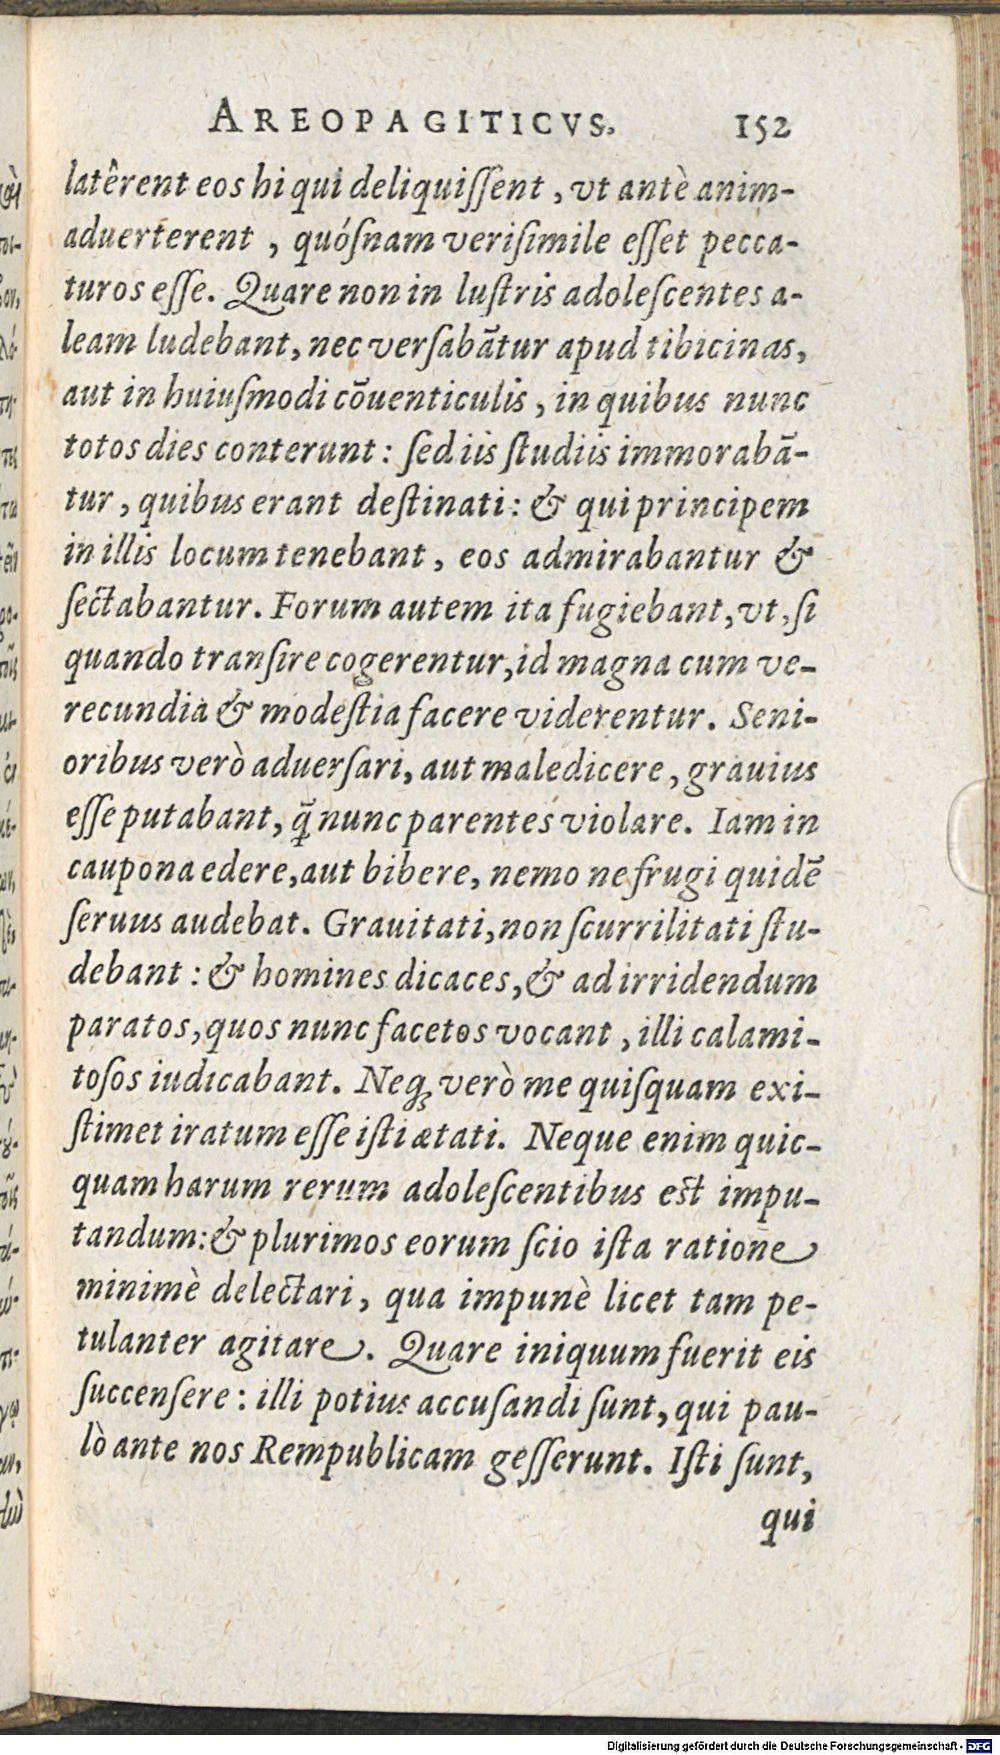 AREOPAGITICVS. 152
latêrent eos hi qui deliquiſſent, vt antè anim-
aduerterent, quóſnam veriſimile eſſet pecca-
turos eſſe. Quare non in luſtris adoleſcentes a-
leam ludebant, nec verſabātur apud tibicinas,
aut in huiuſmodi cōuenticulis, in quibus nunc
totos dies conterunt: ſed iis ſtudiis immorabā-
tur, quibus erant deſtinati: & qui principem
in illis locum tenebant, eos admirabantur &
ſectabantur. Forum autem ita fugiebant, vt, ſi
quando tranſire cogerentur, id magna cum ve-
recundia & modeſtia facere viderentur. Seni-
oribus verò aduerſari, aut maledicere, grauius
eſſe putabant, q̄ nunc parentes violare. Iam in
caupona edere, aut bibere, nemo ne frugi quidē
ſeruus audebat. Grauitati, non ſcurrilitati ſtu-
debant: & homines dicaces, & ad irridendum
paratos, quos nunc facetos vocant, illi calami-
toſos iudicabant. Neq; verò me quiſquam exi-
ſtimet iratum eſſe iſti ætati. Neque enim quic-
quam harum rerum adoleſcentibus eſt impu-
tandum: & plurimos eorum ſcio iſta ratione
minimè delectari, qua impunè licet tam pe-
tulanter agitare. Quare iniquum fuerit eis
ſuccenſere: illi potius accuſandi ſunt, qui pau-
lò ante nos Rempublicam geſſerunt. Iſti ſunt,
qui
Digitalisierung gefördert durch die Deutsche Forschungsgemeinschaft - DFG